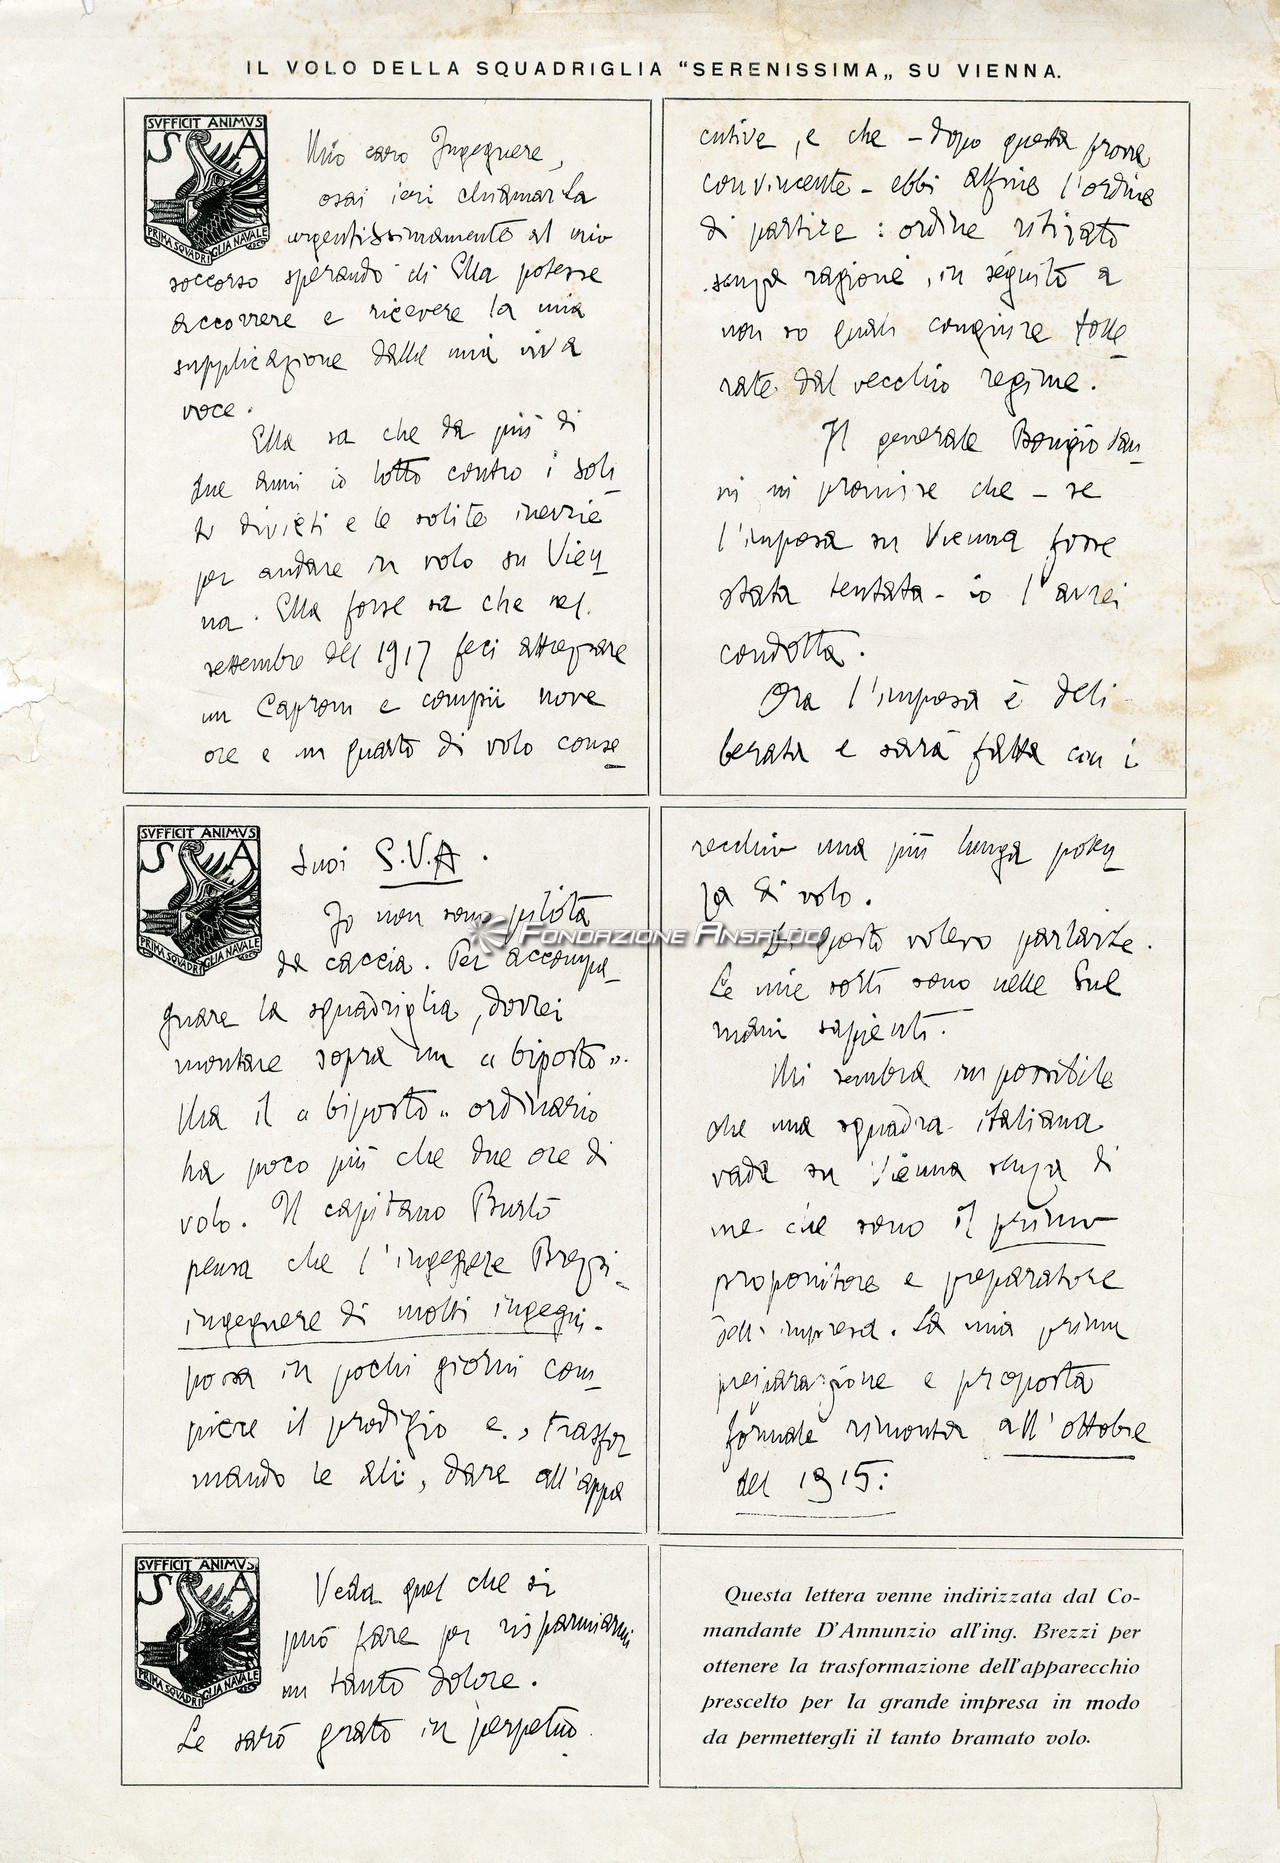 IL VOLO DELLA SQUADRIGLIA “SERENISSIMA„ SU VIENNA.
SVFFICIT ANIMVS
S A
PRIMA SQVADRIGLIA NAVALE
Mio caro Ingegnere,
osai ieri chiamarLa
urgentissimamente al mio
soccorso sperando di Ella potesse
accorrere e ricevere la mia
supplicazione dalla mia viva
voce.
Ella sa che da più di
due anni io lotto contro i soli-
ti divieti e le solite inerzie
per andare in volo su Vien
na. Ella forse sa che nel
settembre del 1917 feci attrezzare
un Caproni e compii nove
ore e un quarto di volo conse
cutive, e che – dopo questa prova
convincente – ebbi alfine l'ordine
di partire: ordine ritirato
senza ragione, in seguito a
non so quali congiure tolle
rate dal vecchio regime.
Il generale Bongiovan-
ni mi promise che – se
l'impresa su Vienna fosse
stata tentata – io l'avrei
condotta.
Ora l'impresa è deli
berata e sarà fatta con i
SVFFICIT ANIMVS
S A
PRIMA SQVADRIGLIA NAVALE
Suoi S.V.A.
Io non sono pilota
da caccia. Per accompa-
gnare la squadriglia, dovrei
montare sopra un « biposto ».
Ma il « biposto » ordinario
ha poco più che due ore di
volo. Il capitano Burlo
pensa che l'ingegnere Brezzi-
ingegnere di molti ingegni-
possa in pochi giorni com-
piere il prodigio e, trasfor
mando le ali, dare all'appa
recchio una più lunga poten
za di volo.
Di questo volevo parlarLe.
Le mie sorti sono nelle Sue
mani sapienti.
Mi sembra impossibile
che una squadra italiana
vada su Vienna senza di
me che sono il primo
propositore e preparatore
dell'impresa. La mia prima
preparazione e proposta
formale rimonta all'ottobre
del 1915:
FONDAZIONE ANSALDO
SVFFICIT ANIMVS
S A
PRIMA SQVADRIGLIA NAVALE
Veda quel che si
può fare per risparmiarmi
un tanto dolore.
Le sarò grato in perpetuo.
Questa lettera venne indirizzata dal Co-
mandante D'Annunzio all'ing. Brezzi per
ottenere la trasformazione dell'apparecchio
prescelto per la grande impresa in modo
da permettergli il tanto bramato volo.